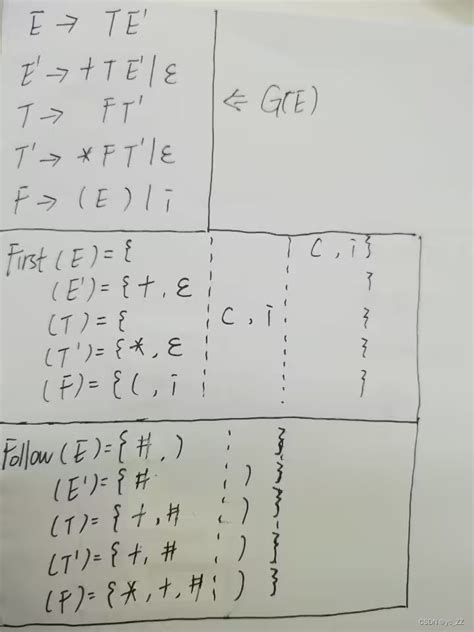 E → TE'
E' → +TE'|ε
T → FT'
T' → *FT'|ε
F → (E)|i
⇐ G(E)
First(E)={ (, i}
(E')={+, ε }
(T)={ (, i }
(T')={*, ε }
(F)={(, i }
Follow(E)={#, ) }
(E')={# ) }
(T)={+,# ) }
(T')={+,# ) }
(F)={*,+,# ) }